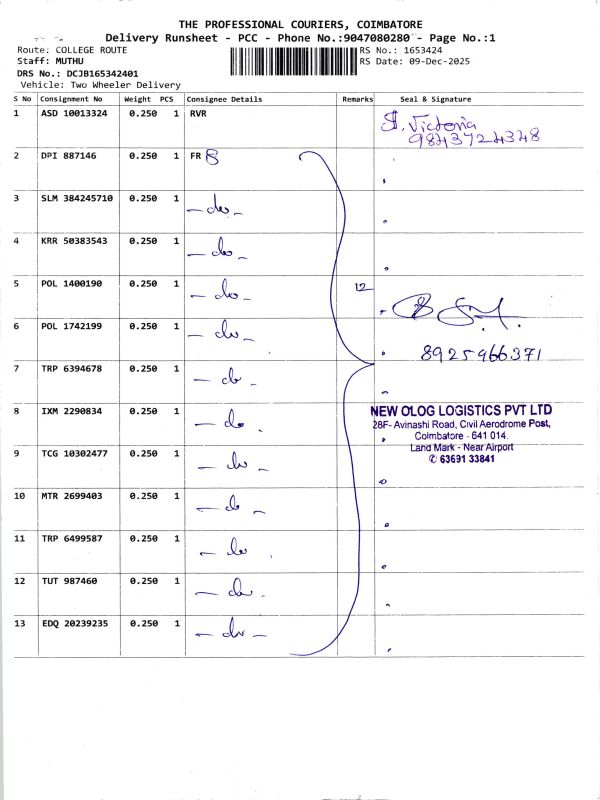 THE PROFESSIONAL COURIERS, COIMBATORE
Delivery Runsheet - PCC - Phone No.:9047080280 - Page No.:1
Route: COLLEGE ROUTE
RS No.: 1653424
Staff: MUTHU
RS Date: 09-Dec-2025
DRS No.: DCJB165342401
Vehicle: Two Wheeler Delivery
S No Consignment No Weight PCS Consignee Details Remarks Seal & Signature
1 ASD 10013324 0.250 1 RVR
Victoria
9843724348
2 DPI 887146 0.250 1 FR 8
3 SLM 384245710 0.250 1 - do -
4 KRR 50383543 0.250 1 - do -
5 POL 1400190 0.250 1 - do - 12
6 POL 1742199 0.250 1 - do -
8925466371
7 TRP 6394678 0.250 1 - do -
8 IXM 2290834 0.250 1 - do -
NEW OLOG LOGISTICS PVT LTD
28F- Avinashi Road, Civil Aerodrome Post,
Coimbatore - 641 014.
Land Mark - Near Airport
✆ 63691 33841
9 TCG 10302477 0.250 1 - do -
10 MTR 2699403 0.250 1 - do -
11 TRP 6499587 0.250 1 - do -
12 TUT 987460 0.250 1 - do -
13 EDQ 20239235 0.250 1 - do -